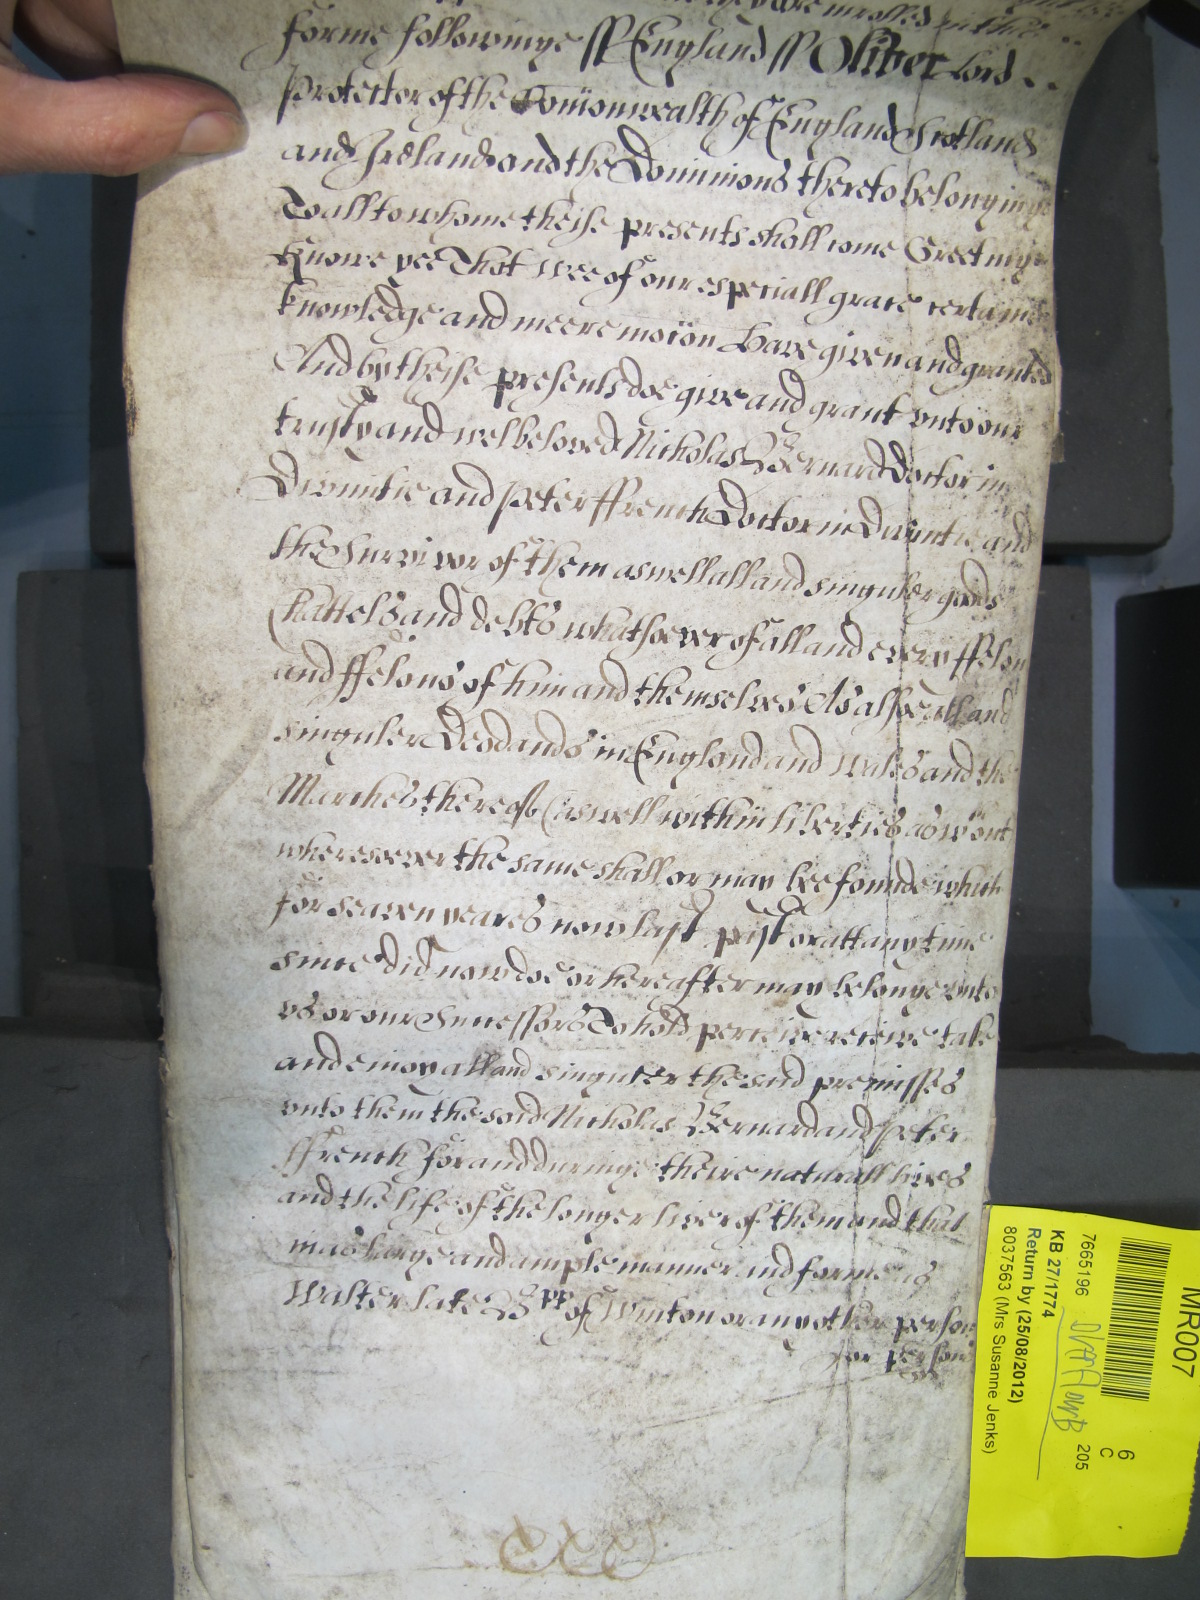 they are inrolled in
forme followinge ss England ss Oliver Lord
Protector of the Com̄onwealth of England Scotland
and Ireland and the Dominions thereto belonginge
To all to whome theise presents shall come Greetinge
Knowe yee That wee of our especiall grace certaine
knowledge and meere moc̄on Have given and granted
And by theise presents doe give and grant unto our
trusty and welbeloved Nicholas Bernard Doctor in
Divinitie and Peter ffrench Doctor in Divinitie and
the Survivor of them aswell all and singuler goods
Chattels and debts whatsoever of all and every ffelon
and ffelons of him and themselves As alsoe all and
singuler Deodands in England and Wales and the
Marches thereof (aswell within liberties as w'out
wheresoever the same shall or may bee founde which
for seaven yeares now last past or att any time
since did now doe or hereafter may belonge unto
us or our Successors To hold perceive receive take
and enioy all and singuler the said premisses
unto them the said Nicholas Bernard and Peter
ffrench for and duringe theire naturall lives
and the life of the longer liver of them and that
in as large and ample manner and forme as
Walter late Bpp of Winton or any other person
or persons
MR007
6
C
205
7665196
KB 27/1774
Return by (25/08/2012)
8037563 (Mrs Susanne Jenks)